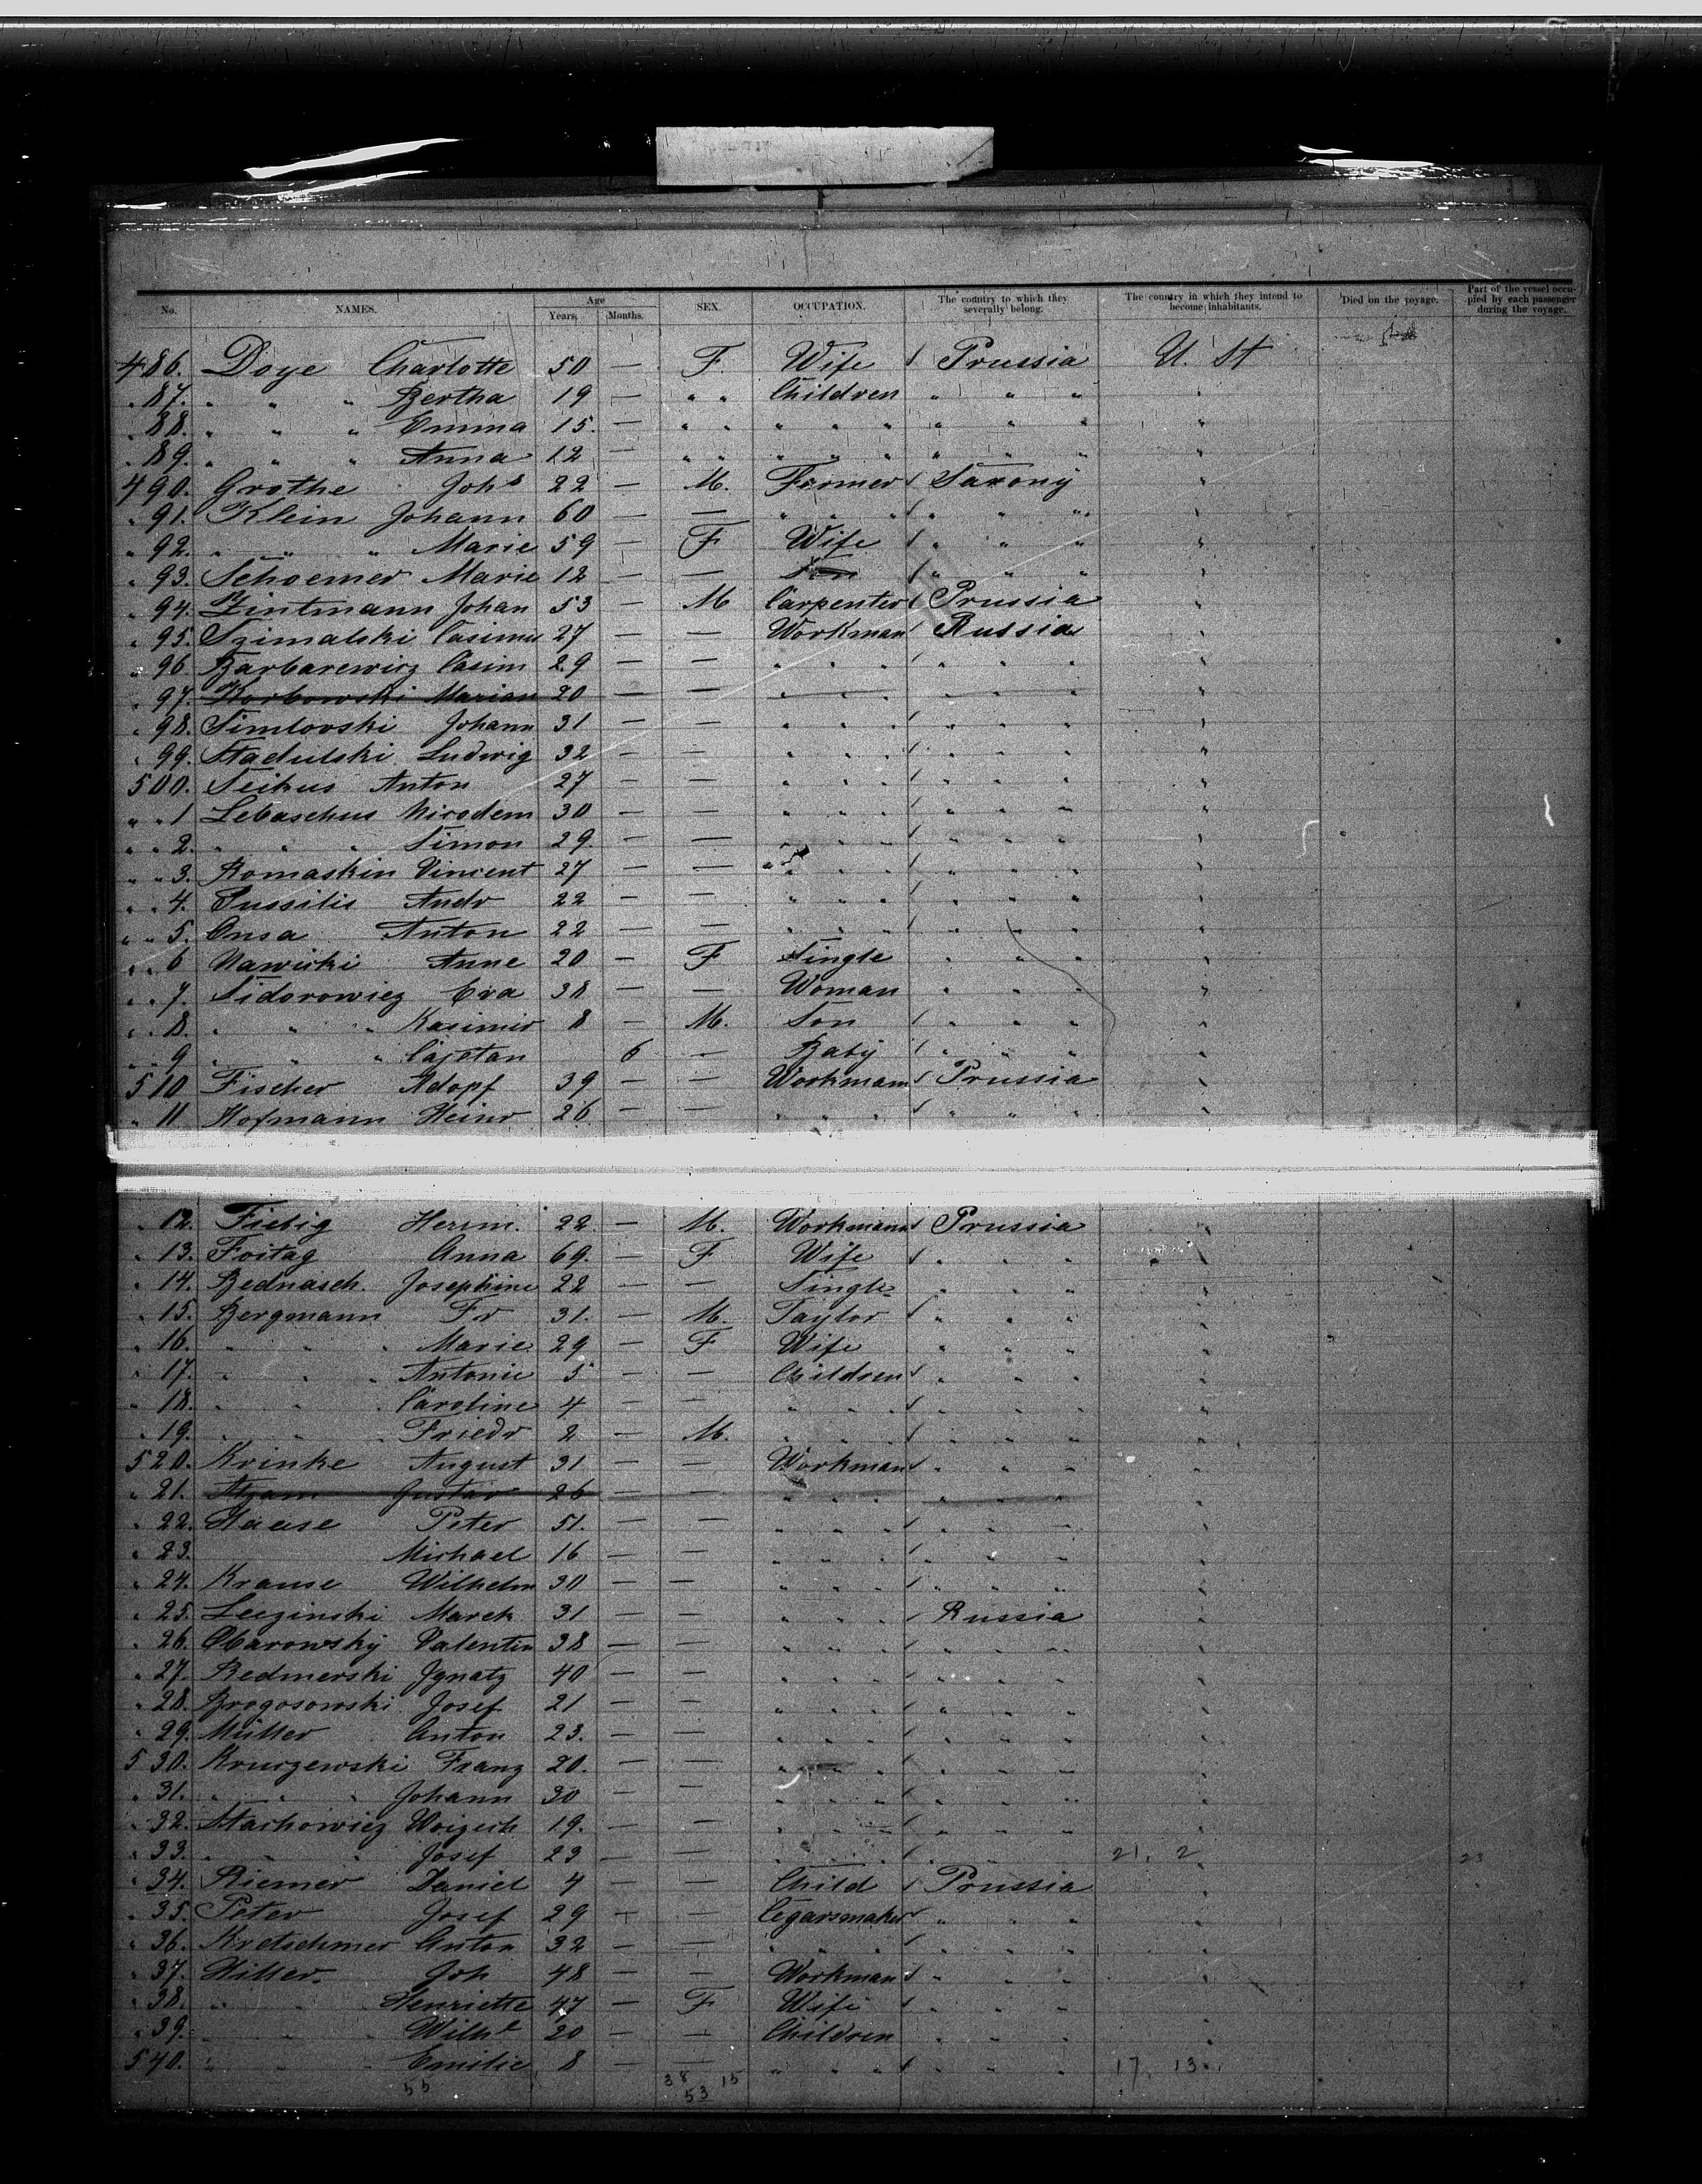 No. NAMES. Age Years. Months. SEX. OCCUPATION. The country to which they severally belong. The country in which they intend to become inhabitants. Died on the voyage. Part of the vessel occupied by each passenger during the voyage.
486. Doye Charlotte 50 — F Wife Prussia U. St
" 87. " " " Bertha 19 — " " Children " " " "
" 88. " " " Emma 15. — " " " " " " " " "
" 89. " " " Anna 12 — " " " " " " " " "
490. Grothe Johs 22 — M. Farmer Saxony "
" 91. Klein Johann 60 — — " " " " " " "
" 92. " " " Marie 59 — F Wife " " " "
" 93. Schoemer Marie 12 — — " " " "
" 94. Zintmann Johan 53 — M Carpenter Prussia "
" 95. Szimalski Casimir 27 — — Workman Russia "
" 96 Barbarewicz Casim 29 — — " " " " " " "
" 97. Korbowski Marian 20 — — " " " " " " "
" 98. Simlovski Johann 31 — — " " " " " " "
" 99. Stadulski Ludwig 32 — — " " " " " " "
500. Seikus Anton 27 — — " " " " " " "
" " 1 Lebaschus Nicodem 30 — — " " " " " " "
" " 2. " " " Simon 29. — — " " " " " " "
" " 3. Romaskin Vincent 27 — — " " " " " " "
" " 4. Pussilis Andr 22 — — " " " " " " "
" " 5. Onsa Anton 22 — — " " " " " " "
" " 6 Nawicki Anne 20 — F Single " " " "
" " 7. Sidorowicz Eva 38 — — Woman " " " "
" " 8. " " " Kasimir 8 — M. Son " " " "
" " 9 " " " Cajetan 6 — Baby " " " "
510 Fischer Adopf 39 — — Workmann Prussia "
" 11 Hofmann Heinr 26. — — " " " " " " "
" 12. Fiebig Herm. 22 — M. Workmann Prussia "
" 13. Foitag Anna 69. — F Wife " " " "
" 14. Bednasch. Josephine 22 — — Single " " " "
" 15. Bergmann Fr 31. — M. Taylor " " " "
" 16. " " " Marie 29 — F Wife " " " "
" 17. " " " Antonie 5 — — Children " " " "
" 18. " " " Caroline 4 — — " " " " " " "
" 19. " " " Friedr 2 — M. " " " " " " "
520. Krinke August 31 — — Workman " " " "
" 21. Gustav 26 — — " " " " " " "
" 22. Haase Peter 51. — — " " " " " " "
" 23. Michael 16 — — " " " " " " "
" 24. Krause Wilhelm 30 — — " " " " " " "
" 25. Luzinski Marek 31 — — " " " Russia "
" 26. Obarowsky Valentin 38 — — " " " " " " "
" 27. Redmerski Jgnatz 40 — — " " " " " " "
" 28. Brogosowski Josef 21 — — " " " " " " "
" 29. Müller Anton 23. — — " " " " " " "
530. Kruczewski Franz 20. — — " " " " " " "
" 31. " " " Johann 30 — — " " " " " " "
" 32. Stachowicz Woizech 19. — — " " " " " " "
" 33. " " " Josef 23 — — " " " " " " 21, 2 " 23
" 34. Riemer Daniel 4 — — Child Prussia "
" 35. Peter Josef 29 — — Cegarsmaker " " " "
" 36. Kretschmer Anton 32 — — " " " " " " "
" 37. Hiller. Joh 48 — — Workman " " " "
" 38. " " Henriette 47 — F Wife " " " "
" 39. " " " Wilhe 20 — — Children " " " "
540. " " " Emilie 8 — — " " " " " " 17, 13 "
55 38 15
53